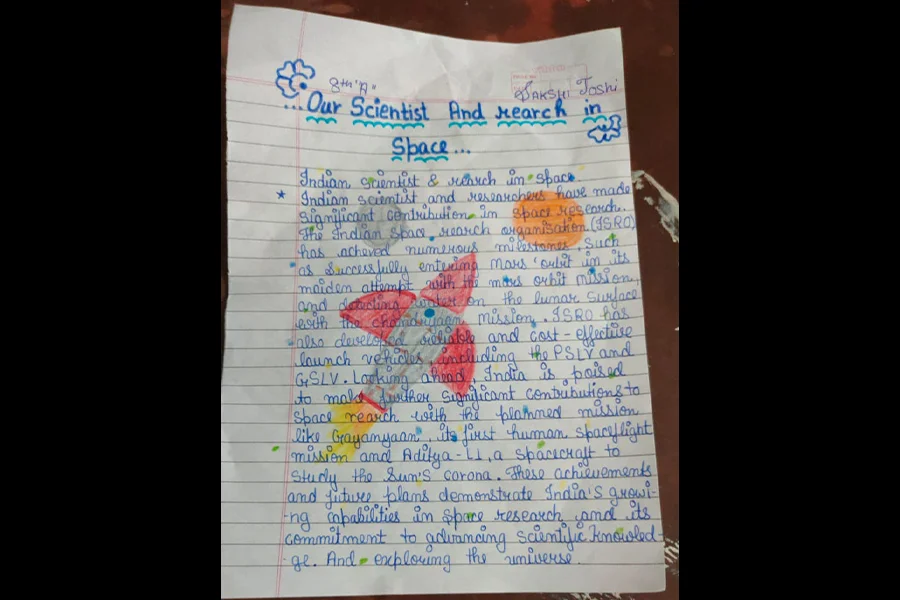 8th "A"
SAKSHI Joshi
...Our Scientist And rearch in
Space...
Indian scientist & rearch in space
* Indian scientist and researchers have made
significant contribution in space research.
The Indian space rearch organisation (ISRO)
has acheved numerous milestones such
as successfully entering Mars orbit in its
maiden attempt with the mars orbit mission,
and detecting water on the lunar surface
with the chandrayaan mission. ISRO has
also developed reliable and cost-effective
launch vehicles, including the PSLV and
GSLV. Looking ahead, India is poised
to make further significant contributions to
space rearch with the planned mission
like Gayanyaan, its first human spaceflight
mission and Aditya-L1, a spacecraft to
study the Sun's corona. These achievements
and future plans demonstrate India's growi-
-ng capabilities in space research and its
commitment to advancing scientific knowled-
-ge. And exploring the universe.